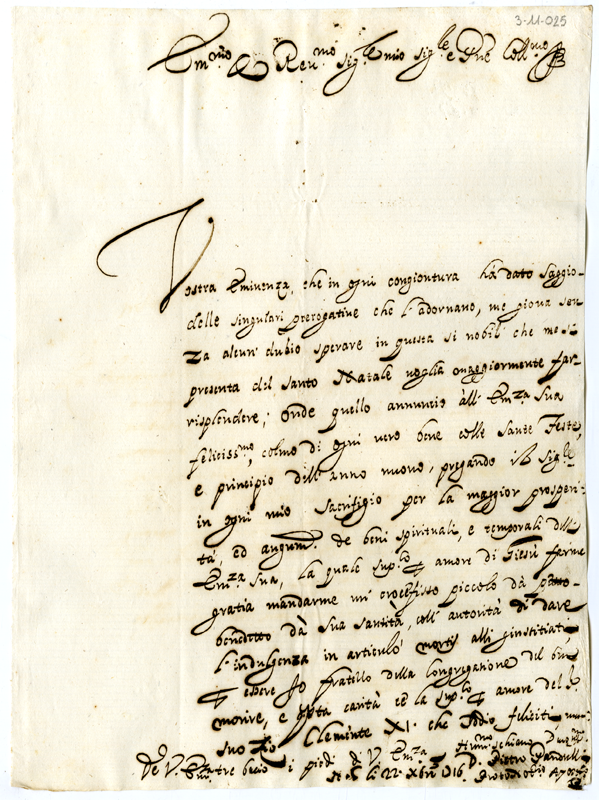 3-11-025
Em.mo e Reu.mo Sig.le mio Sig.le e Pne Coll.mo
Vostra Eminenza, che in ogni congiontura hà dato saggio
delle singulari prerogatiue che l'adornano, me gioua sen
za alcun' dubio sperare in questa si nobil' che me si
presenta del Santo Natale uoglia maggiormente far
risplendere; Onde quello annuncio all' Em.za Sua
feliciss.mo, colmo di ogni uero bene colle Sante Feste,
e principio dell' anno nuouo, pregando il Sig.le
in ogni mio Sacrifigio per la maggior prosperi
tà, ed augum.to de beni spirituali, e temporali dell'
Em.za Sua, la quale sup.co amore di Giesù farme
gratia mandarme un' crocefisso piccolo dà
benedetto dà Sua Santità, coll' autorità di dare
l'indulgenza in articulo mortis alli giustitiati
essere Io fratello della Congregatione del ben
morire, e carità ce la sup.co amore del S.
suo Zio Clemente XI. che Iddio feliciti,
De V. Em.za tre bacio i piedi di V. Em.za
D. Pietro